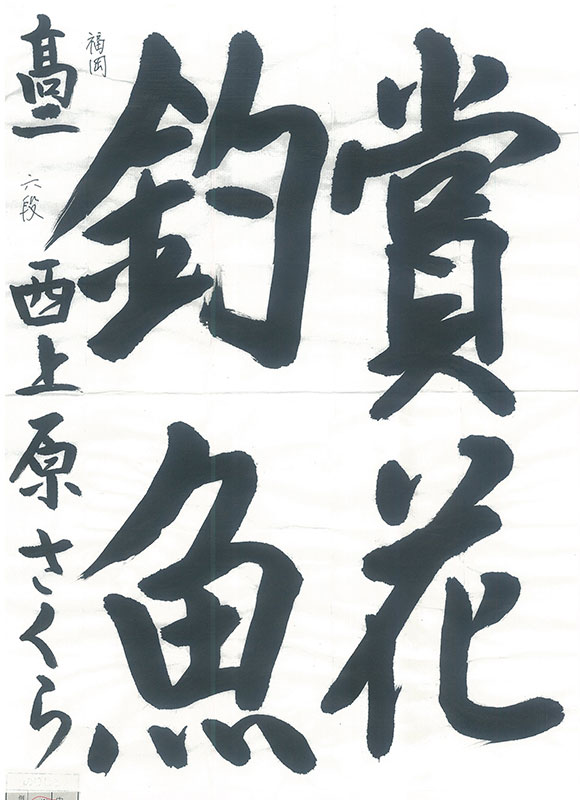 賞花
釣魚
福岡
高二 六段 西上原さくら